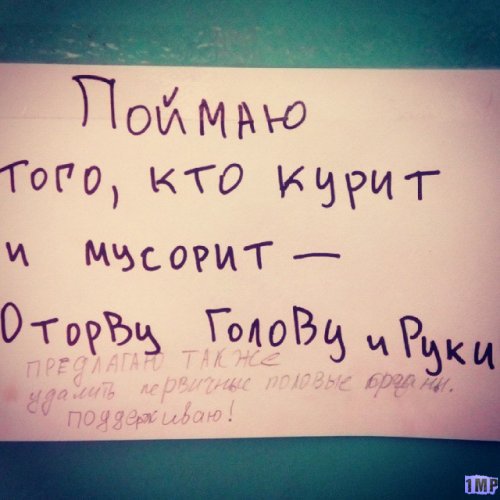 Поймаю
того, кто курит
и мусорит —
Оторву Голову и Руки
ПРЕДЛАГАЮ ТАКЖЕ
удалить первичные половые органы.
поддерживаю!
1MP